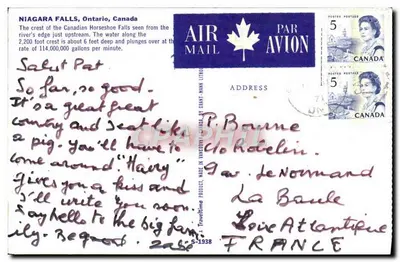 NIAGARA FALLS, Ontario, Canada
The crest of the Canadian Horseshoe Falls seen from the
river's edge just upstream. The water along the
2,200 foot crest is about 6 feet deep and plunges over at the
rate of 114,000,000 gallons per minute.
Salut Pat.
So far, so good.
It's a great great
country and I eat like
a pig. You'll have to
come around "Hairy"
gives you a kiss and
I'll write you soon.
Say hello to the big fam-
ily. Be good.
AIR
MAIL
PAR
AVION
POSTES POSTAGE
5
CANADA
POSTES POSTAGE
5
CANADA
ADDRESS
P. Bourne
c/o Robelin
9 av. Le Normand
La Baule
Loire Atlantique
FRANCE
S-1938